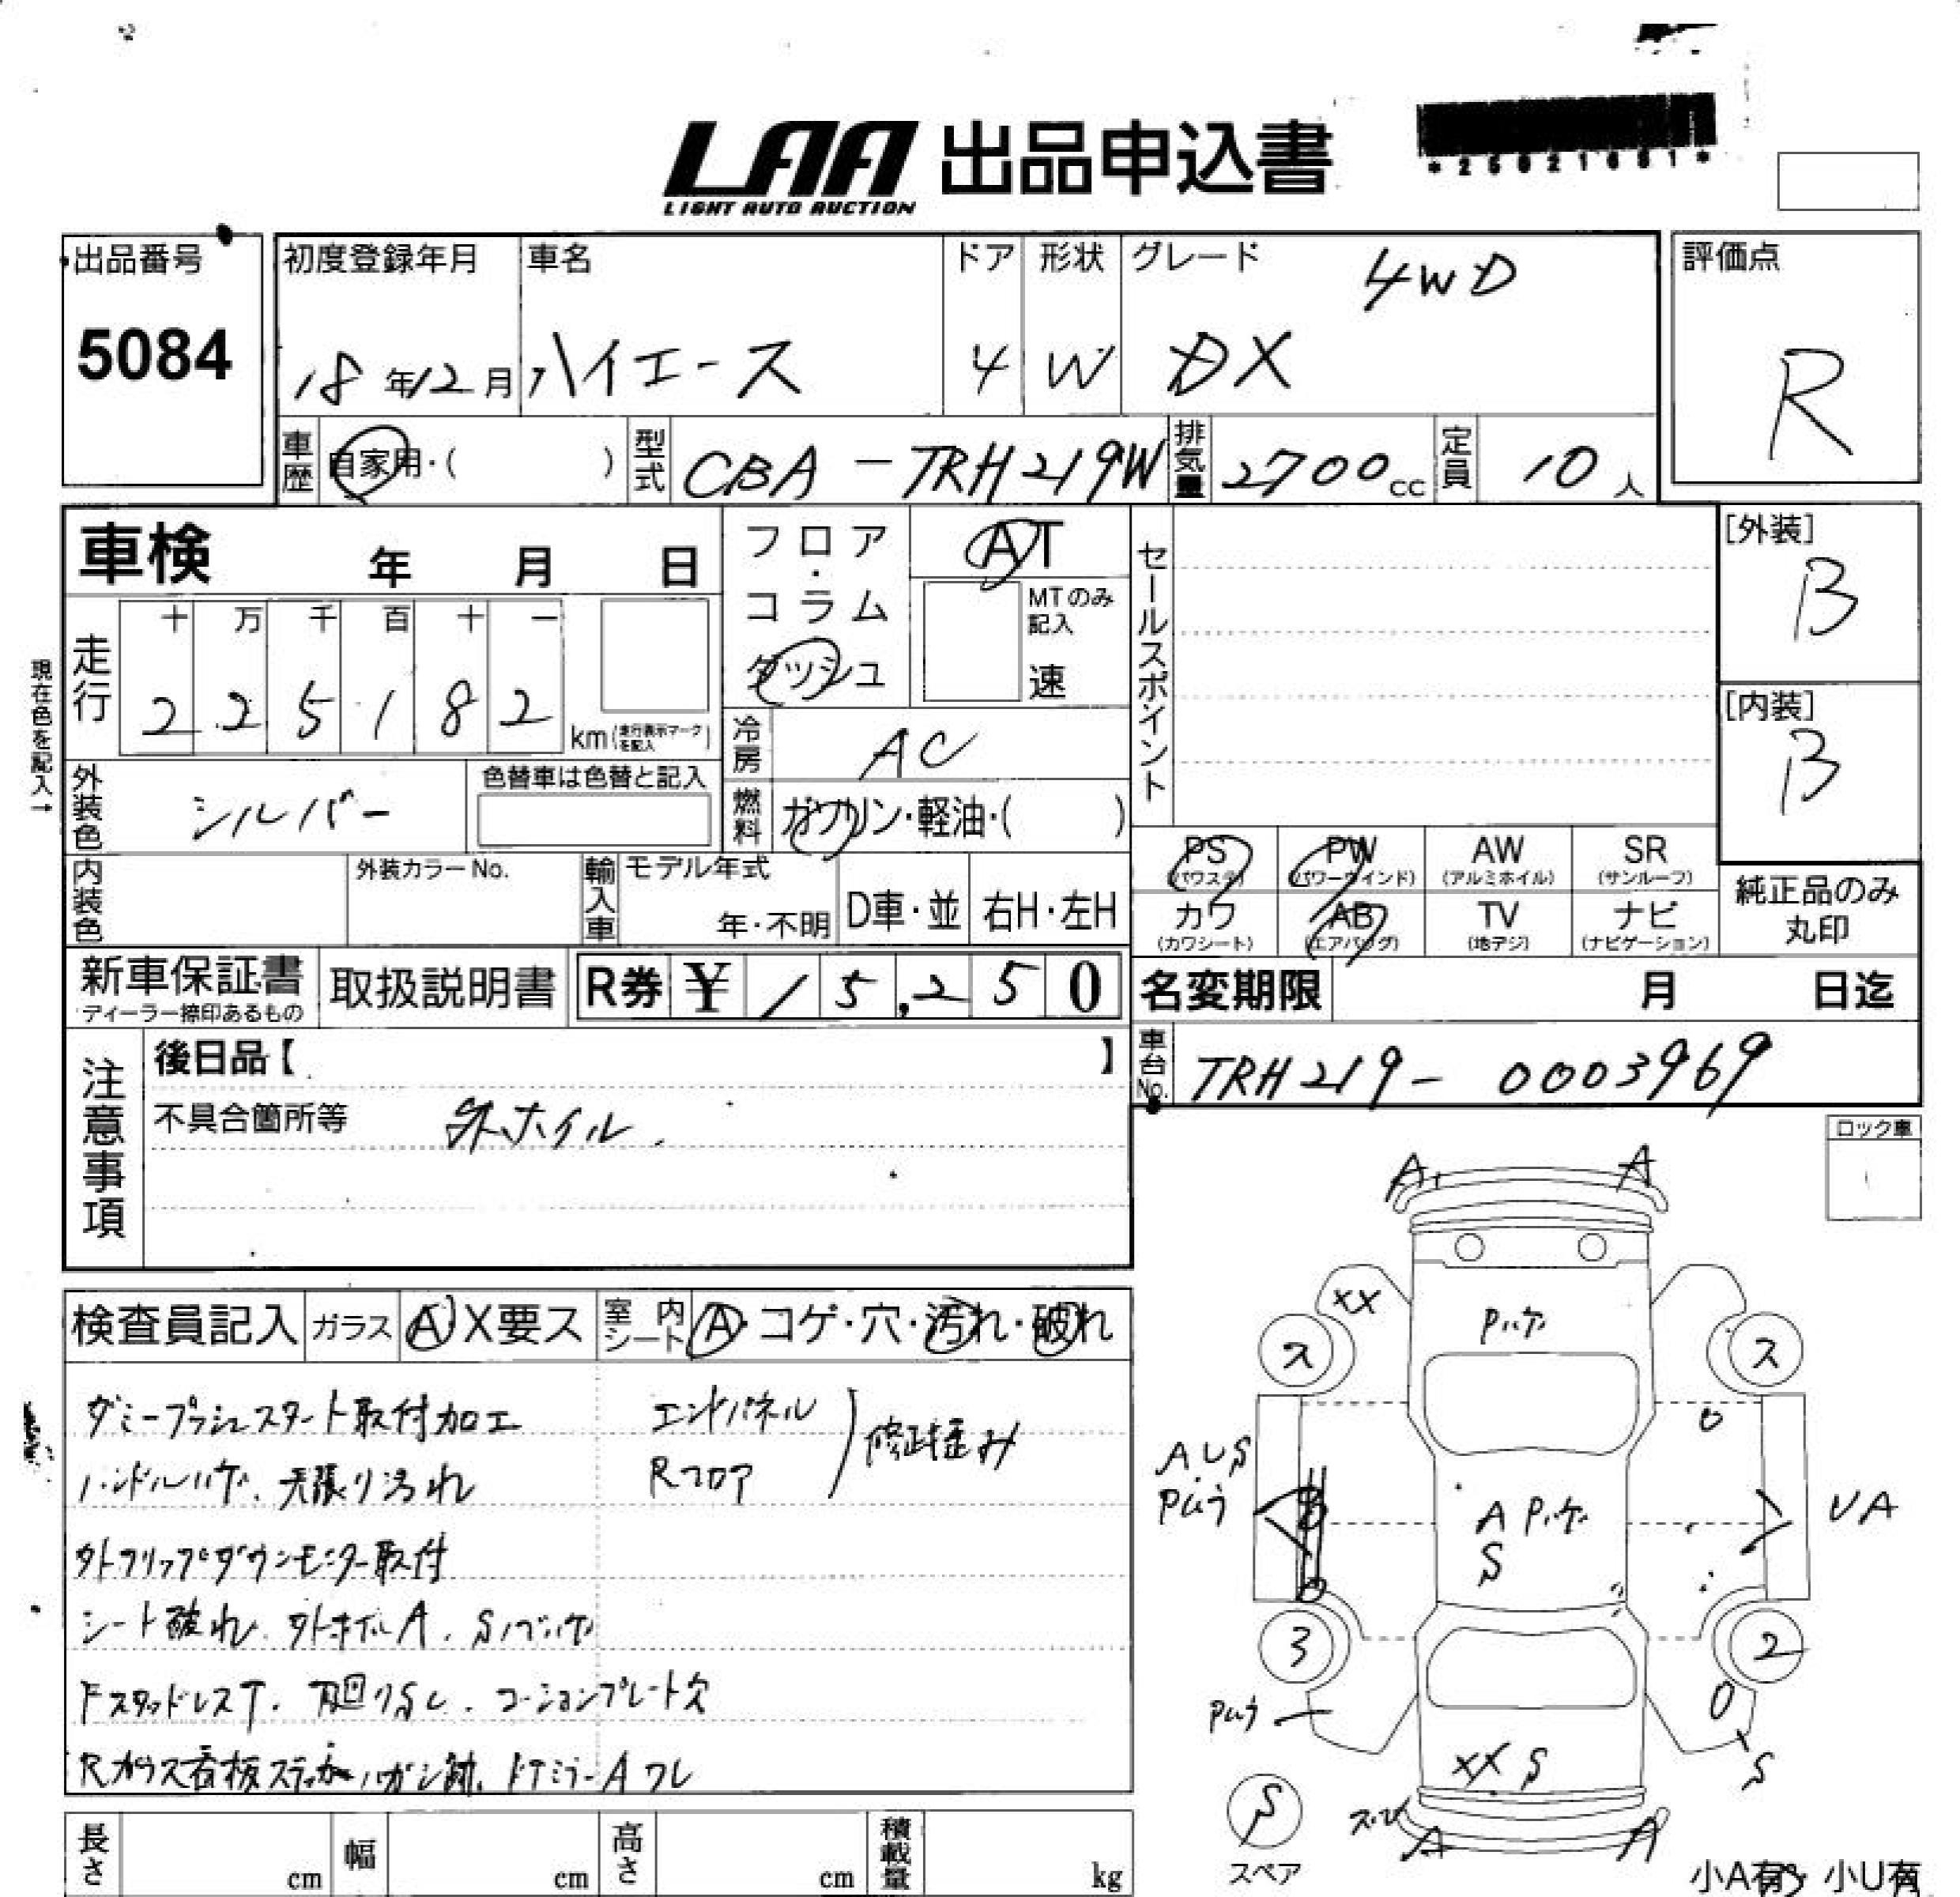 LAA 出品申込書
LIGHT AUTO AUCTION
出品番号
5084
初度登録年月
18年12月
車名
ハイエース
ドア
4
形状
W
グレード
4WD
DX
評価点
R
車歴
自家用・( )
型式
CBA-TRH219W
排気量
2700cc
定員
10人
車検 年 月 日
フロア・コラム
ダッシュ
AT
MTのみ記入
速
セールスポイント
[外装]
B
[内装]
B
現在色を記入→
走行
十 万 千 百 十 一
2 2 5 1 8 2
km(走行表示マークを記入)
冷房
AC
外装色
シルバー
色替車は色替と記入
燃料
ガソリン・軽油・( )
内装色
外装カラーNo.
輸入車
モデル年式
年・不明
D車・並
右H・左H
PS
(パワステ)
PW
(パワーウインド)
AW
(アルミホイル)
SR
(サンルーフ)
カワ
(カワシート)
AB
(エアバッグ)
TV
(地デジ)
ナビ
(ナビゲーション)
純正品のみ
丸印
新車保証書
ディーラー捺印あるもの
取扱説明書
R券 ¥ 15,250
名変期限 月 日迄
車台No.
TRH219-0003969
注意事項
後日品【 】
不具合箇所等
外ホイル.
ロック車
検査員記入
ガラス
A・X要ス
室内シート
A・コゲ・穴・汚れ・破れ
ダミープッシュスタート取付加工
エンドパネル
Rフロア
修正歪み
ハンドルハゲ、天張り汚れ
外フリップダウンモニター取付
シート破れ.外ホイルA.
FスタッドレスT. 下廻りSし. コーションプレート欠
Rガラス看板ステッカーハガシ跡、ドアミラーA
A A
XX
Pハゲ
ス
ス
AUS
Pムラ
A Pハゲ
S
UA
3
2
Pムラ
XX S
S
S
スペア
A A
長さ cm
幅 cm
高さ cm
積載量 kg
小A有 小U有